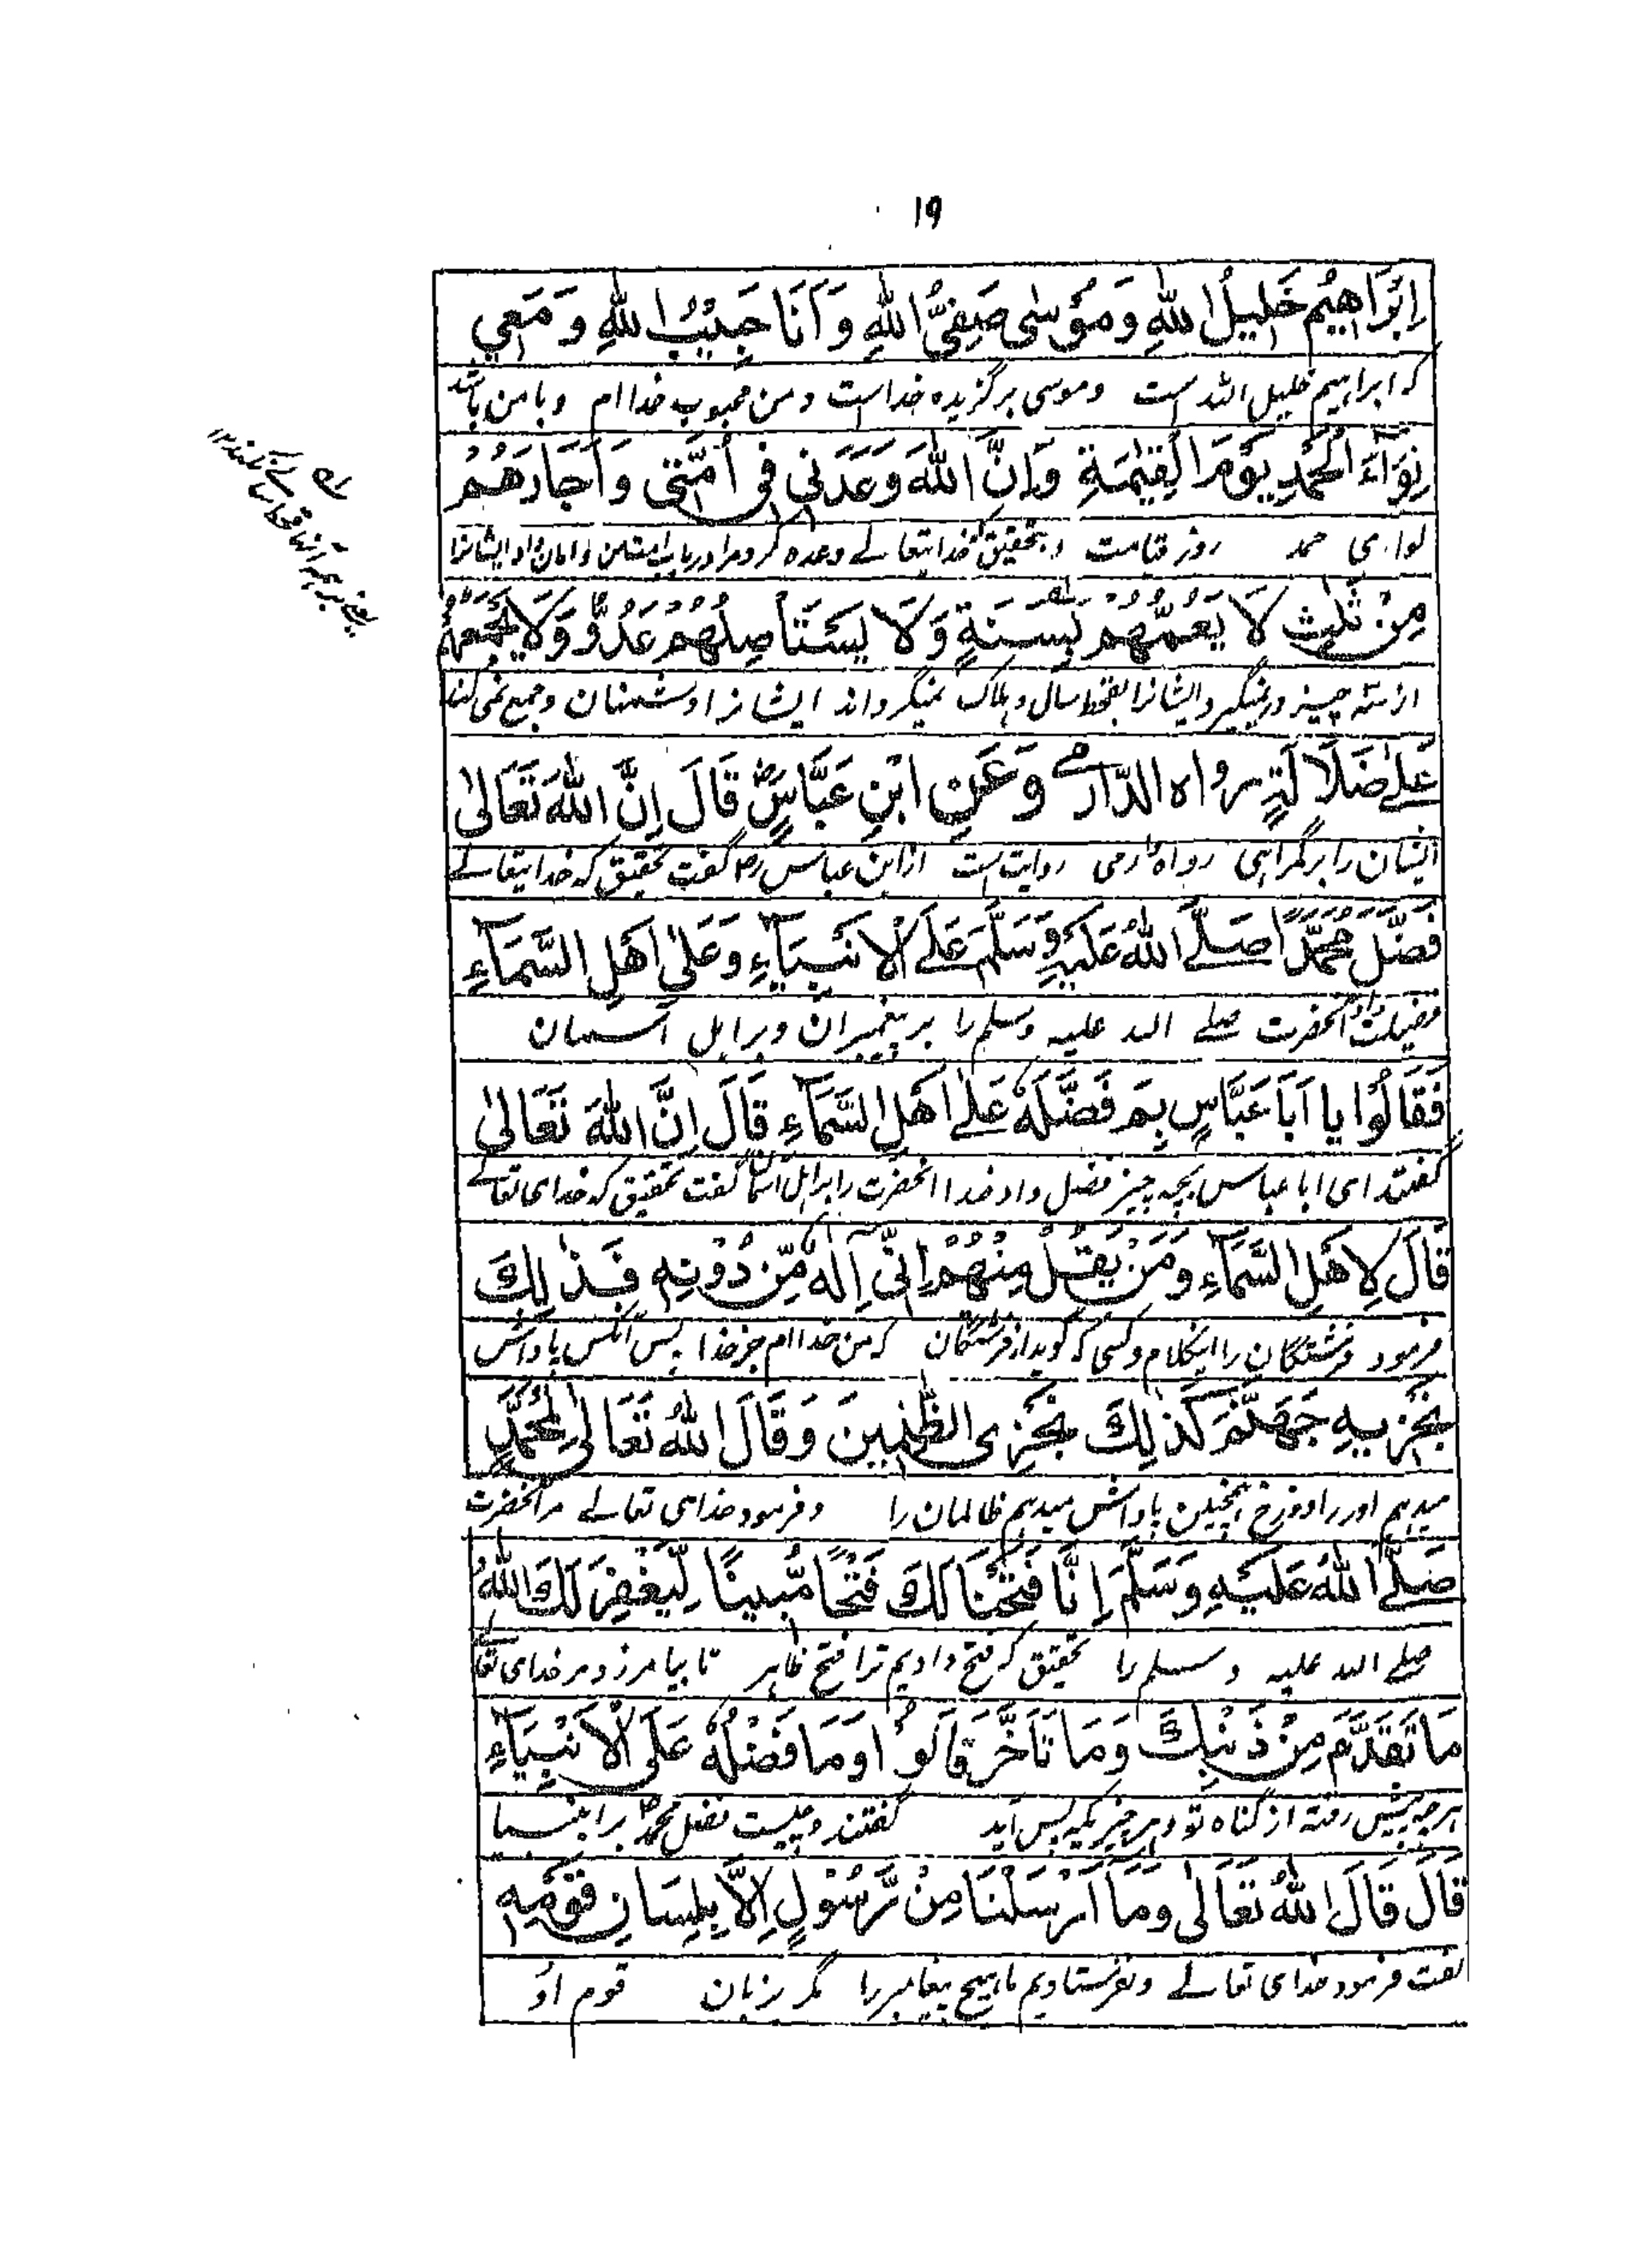 ۱۹
اِبْرَاهِيْمُ خَلِيلُ اللهِ وَمُوْسٰى صَفِيُّ اللهِ وَاَنَا حَبِيْبُ اللهِ وَمَعِي
که ابراهیم خلیل الله است وموسی برگزیده خداست ومن محبوب خدا ام وبا من باشد
لِوَآءُ الْحَمْدِ يَوْمَ الْقِيٰمَةِ وَاِنَّ اللهَ وَعَدَنِي فِي اُمَّتِي وَاَجَارَهُمْ
لوای حمد روز قیامت وبتحقیق خدایتعالے وعده کرد مرا در باب امت من وامان داد ایشانرا
مِنْ ثَلٰثٍ لَا يَعُمُّهُمْ بِسَنَةٍ وَلَا يَسْتَاْصِلُهُمْ عَدُوٌّ وَلَا يَجْمَعُهُمْ
از سه چیز درنمیگیرد ایشانرا بقحط سال وهلاک نمیگرداند ایشانرا دشمنان وجمع نمی کند
عَلٰے ضَلَالَةٍ رواه الدّارمے وَعَنِ ابْنِ عَبَّاسٍؓ قَالَ اِنَّ اللهَ تَعَالٰى
ایشان را بر گمراهی رواه دارمی روایت است از ابن عباس رض گفت تحقیق که خدایتعالے
فَضَّلَ مُحَمَّدًا صَلَّے اللهُ عَلَيْهِ وَسَلَّمَ عَلَے الْاَنْبِيَآءِ وَعَلٰى اَهْلِ السَّمَآءِ
فضیلت داد آنحضرت صلے الله علیه وسلم را بر پیغمبران وبر اهل آسمان
فَقَالُوْا يا اَبَا عَبَّاسٍ بِمَ فَضَّلَهٗ عَلٰے اَهْلِ السَّمَآءِ قَالَ اِنَّ اللهَ تَعَالٰى
گفتند ای ابا عباس بچه چیز فضل داد خدا آنحضرت را بر اهل آسمان گفت تحقیق که خدای تعالے
قَالَ لِاَهْلِ السَّمَآءِ وَمَنْ يَّقُلْ مِنْهُمْ اِنِّیْ اِلٰهٌ مِّنْ دُوْنِهٖ فَذٰلِكَ
فرمود فرشتگان را اینکلام وکسی که گوید از فرشتگان که من خدا ام جز خدا پس آنکس پاداش
نَجْزِيهِ جَهَنَّمَ كَذٰلِكَ نَجْزِى الظّٰلِمِينَ وَقَالَ اللهُ تَعَالٰى لِمُحَمَّدٍ
میدهیم اورا دوزخ همچنین پاداش میدهیم ظالمان را وفرمود خدای تعالے مر آنحضرت
صَلَّے اللهُ عَلَيْهِ وَسَلَّمَ اِنَّا فَتَحْنَا لَكَ فَتْحًا مُّبِينًا لِّيَغْفِرَ لَكَ اللهُ
صلے الله علیه وسلم را تحقیق که فتح دادیم ترا فتح ظاهر تا بیامرزد مر خدای تعا
مَا تَقَدَّمَ مِنْ ذَنْبِكَ وَمَا تَاَخَّرَ قَالُوْا وَمَا فَضْلُهٗ عَلَى الْاَنْبِيَآءِ
هرچه پیش رفته از گناه تو وهر چیزیکه پس آید گفتند وچیست فضل محمد بر انبیا
قَالَ قَالَ اللهُ تَعَالٰى وَمَا اَرْسَلْنَا مِنْ رَّسُوْلٍ اِلَّا بِلِسَانِ قَوْمِهٖ
گفت فرمود خدای تعالے ونفرستادیم ما هیچ پیغامبر را مگر بزبان قوم او